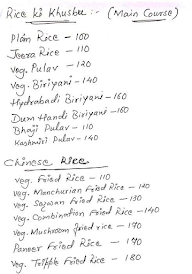 Rice ki Khusbu :- (Main Course)
Plain Rice - 100
Jeera Rice - 110
Veg. Pulav - 120
Veg. Biriyani - 140
Hydrabadi Biriyani - 160
Dum Handi Biriyani - 160
Bhaji Pulav - 110
Kashmiri Pulav - 140
Chinese Rice
Veg. Fried Rice - 110
Veg. Manchurian Fried Rice - 140
Veg. Sezwan Fried Rice - 130
Veg. Combination Fried Rice - 140
Veg. Mushroom fried rice - 170
Paneer Fried Rice - 170
Veg. Tripple Fried Rice - 180